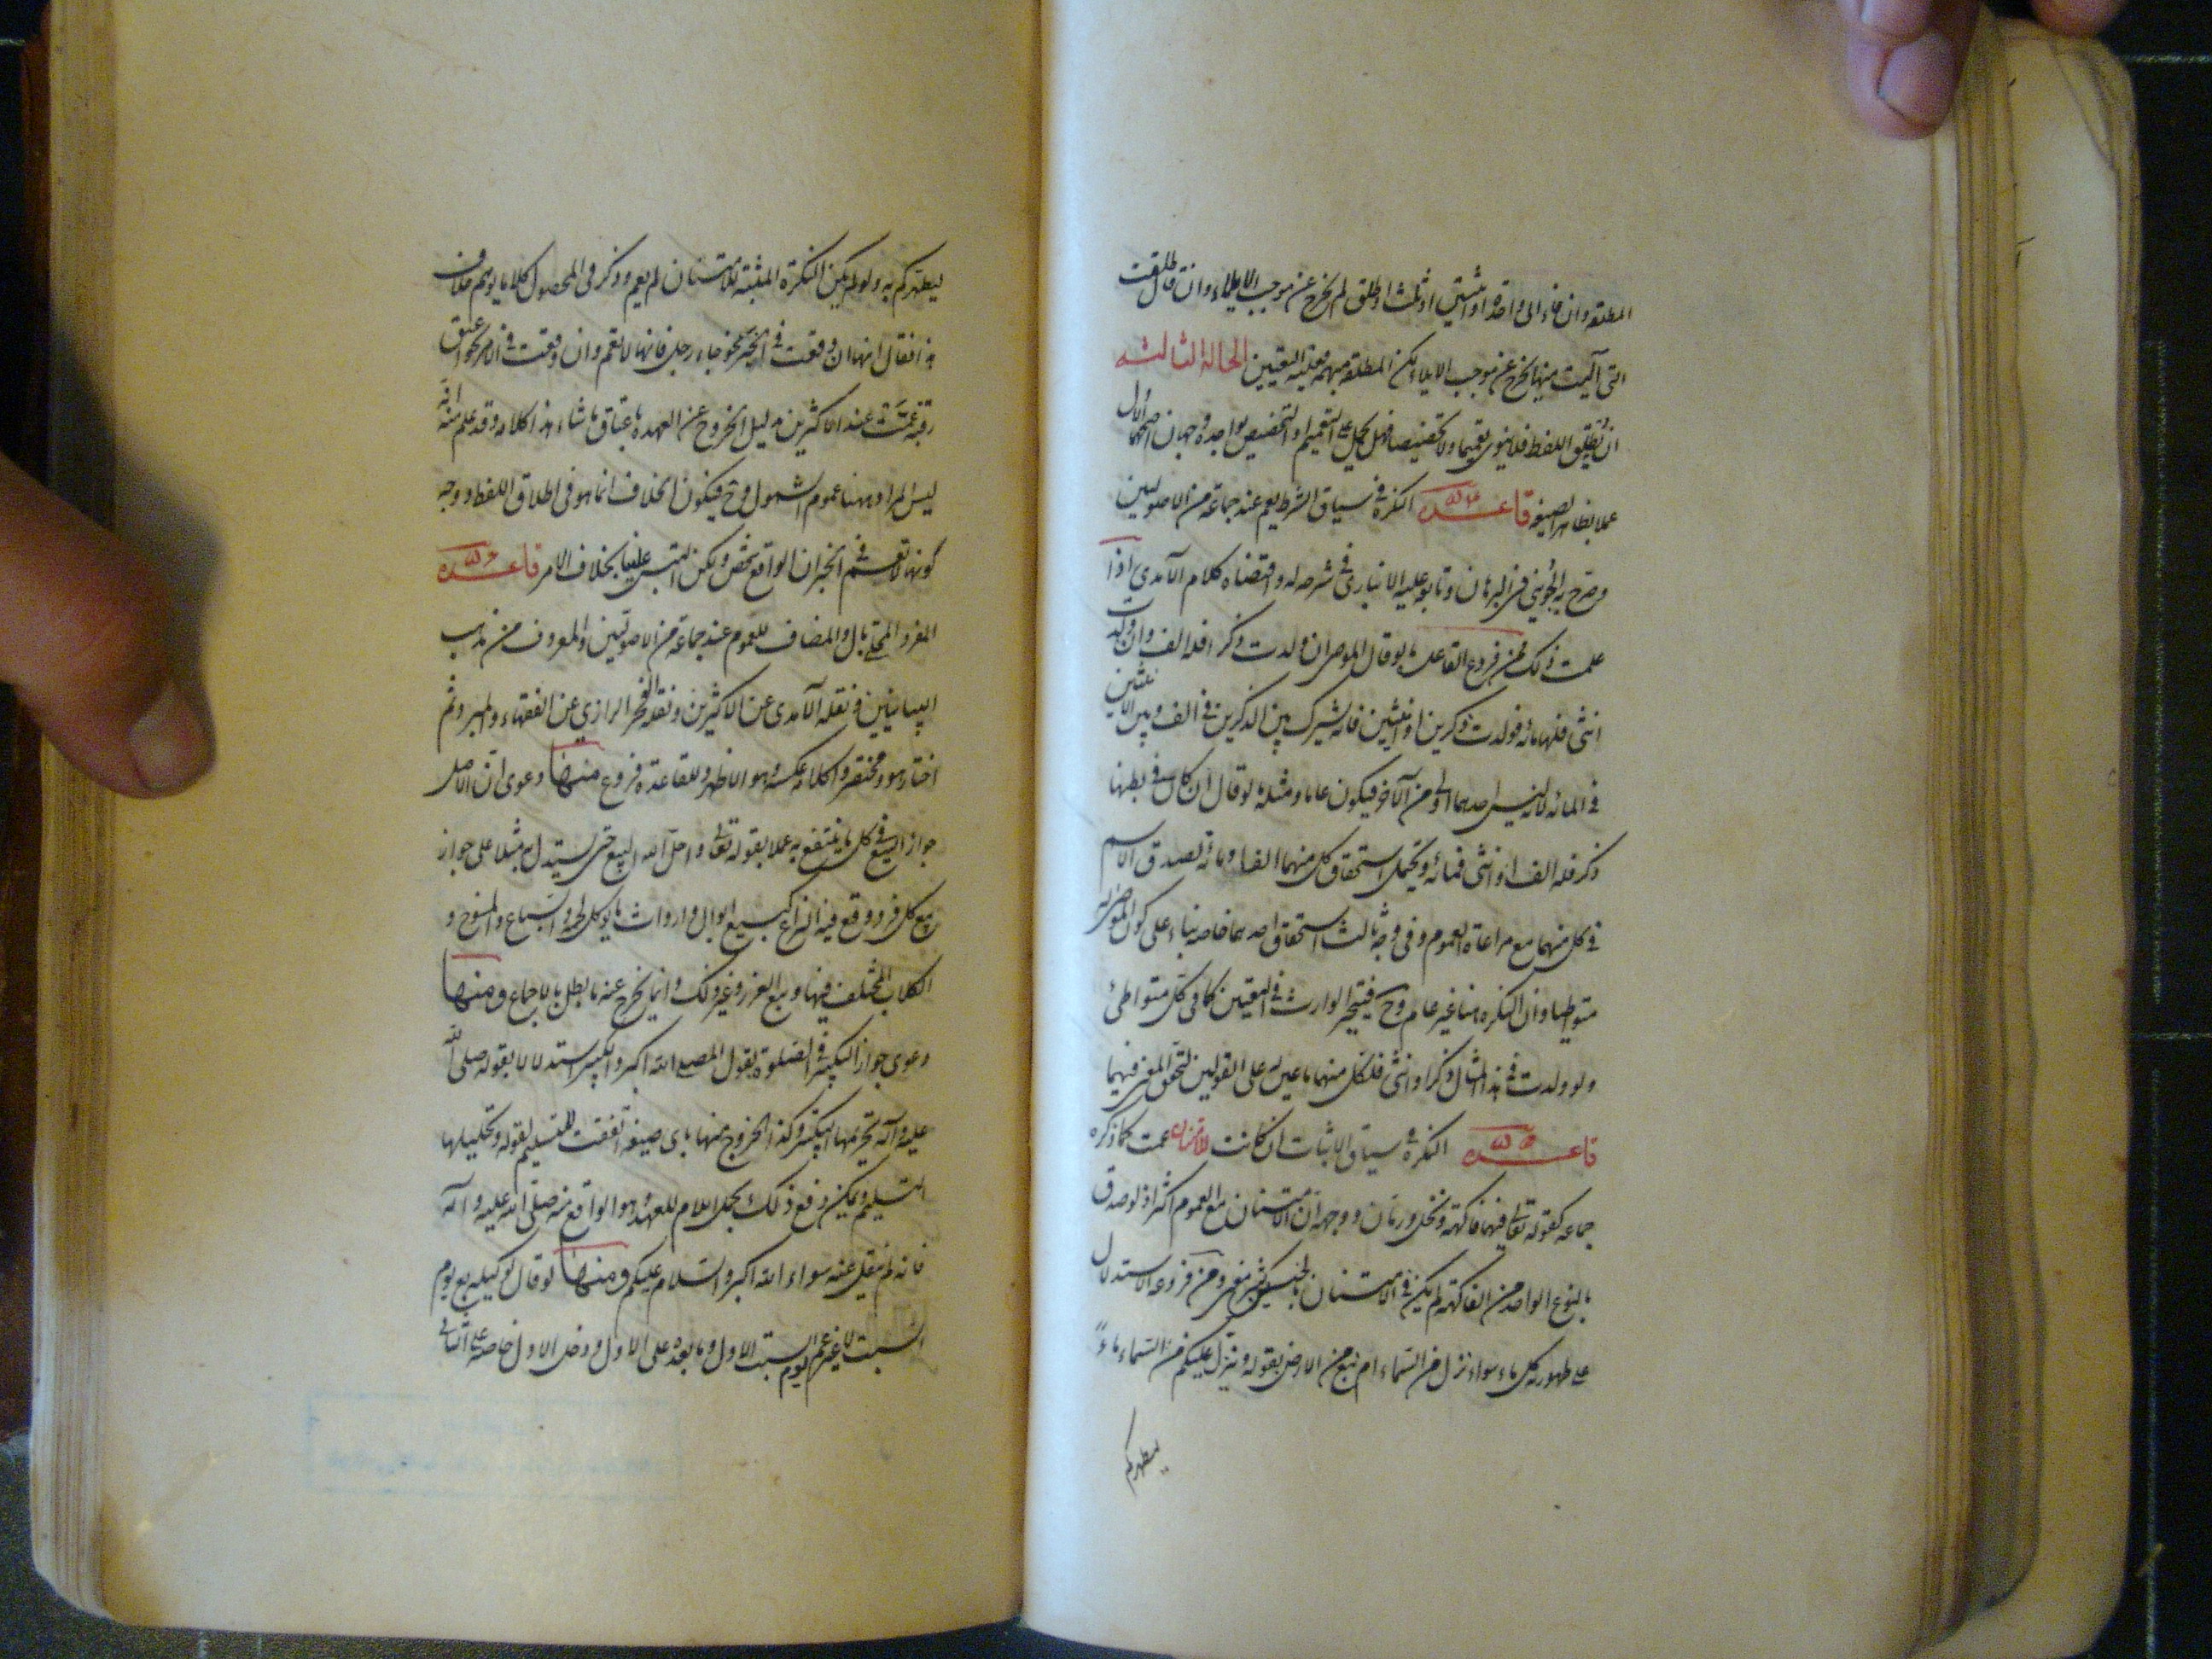 المطلقه وان فاء الى واحدة او اثنتين او ثلث او طلق لم يخرج عن موجب الايلاء وان قال طلقت
التى آليت منها خرج عن موجب الايلاء لكن المطلقه مبهمه فعليه التعيين الحالة الثالثه
ان يطلق اللفظ فلا ينوى تعميما ولا تخصيصا فهل يحمل على التعميم او التخصيص بواحدة وجهان اصحهما الاول
عملا بظاهر الصيغه قاعده النكرة فى سياق الشرط يعم عند جماعة من الاصوليين
وصرح به الجوينى فى البرهان وتابعه عليه الانبارى فى شرحه له واقتضاه كلام الآمدى اذا
علمت ذلك فمن فروع القاعده ما لو قال الموصى ان ولدت ذكرا فله الف وان ولدت
انثى فلها مائه فولدت ذكرين او انثيين فانه يشرك بين الذكرين فى الالف وبين الانثيين
فى المائه لانه ليس احدهما اولى من الآخر فيكون عاما ومثله لو قال ان كان فى بطنها
ذكر فله الف او انثى فمائه ويحتمل استحقاق كل منهما الفا ومائه لصدق الاسم
فى كل منهما مع مراعاة العموم وفى وجه ثالث استحقاق احدهما خاصه بناء على كون الموصى له
متواطيا وان النكره هنا غير عام وح فيتخير الوارث فى التعيين كما فى كل متواطئ
ولو ولدت فى هذا المثال ذكرا وانثى فلكل منهما ما عين له على القولين لتحقق المعنى فيهما
قاعده النكرة فى سياق الاثبات ان كانت للامتنان عمت كما ذكره
جماعه كقوله تعالى فيهما فاكهة ونخل ورمان ووجهه ان الامتنان مع العموم اكثر اذ لو صدق
بالنوع الواحد من الفاكهة لم يكن فى الامتنان بالجنسين كثير معنى ومن فروعه الاستدلال
على طهورية كل ماء سواء نزل من السماء ام نبع من الارض بقوله وينزل عليكم من السماء ماءً
ليطهركم
ليطهركم به ولو لم يكن النكرة المثبتة للامتنان لم يعم وذكر فى المحصول كلاما يوهم خلاف
هذا فقال انها ان وقعت فى الخبر نحو جاء رجل فانها لا تعم وان وقعت فى الامر نحو اعتق
رقبة عمت عند الاكثرين بدليل الخروج عن العهدة باعتاق ما شاء هذا كلامه وقد علم منه انه
ليس المراد هنا عموم الشمول وح فيكون الخلاف انما هو فى اطلاق اللفظ ووجه
كونها لا تعم فى الخبر ان الواقع شخص ولكن التبس علينا بخلاف الامر قاعده
المفرد المحلى بال والمضاف للعموم عند جماعة من الاصوليين والمعروف من مذهب
البيانيين ونقله الآمدى عن الاكثرين ونقله الفخر الرازي عن الفقهاء والمبرد ثم
اختار هو ومختصروا كلامه عكسه وهو الاظهر وللقاعدة فروع منها دعوى ان الاصل
جواز البيع فى كل ما ينتفع به عملا بقوله تعالى واحل الله البيع حتى يستدل به مثلا على جواز
بيع كل فرد وقع فيه النزاع كبيع ابوال وارواث ما يوكل لحمه والسباع والمسوخ و
الكلاب المختلف فيها وبيع الغرر وغير ذلك وانما خرج عنه ما بطل بالاجماع ومنها
دعوى جواز التكبير فى الصلوة بقول المصلى الله اكبر والكبير استدلالا بقوله صلى الله
عليه وآله تحريمها التكبير وكذا الخروج منها باى صيغه اتفقت للتسليم لقوله وتحليلها
التسليم ويمكن دفع ذلك بحمل اللام للعهد وهو الواقع منه صلى الله عليه وآله
فانه لم ينقل عنه سواء الله اكبر والسلام عليكم ومنها لو قال لوكيله بع يوم
السبت لا غير عم اليوم السبت الاول وما بعده على الاول ودخل الاول خاصه على الثانى